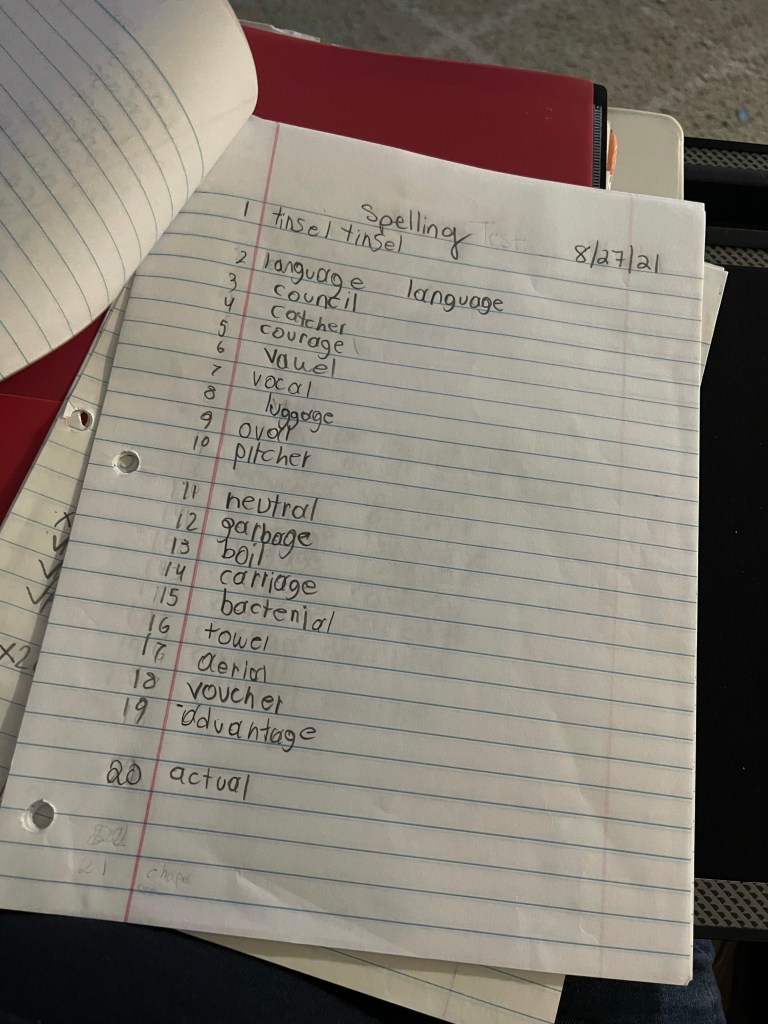 Spelling Test
8/27/21
1 tinsel tinsel
2 language language
3 council
4 catcher
5 courage
6 vauel
7 vocal
8 luggage
9 oval
10 pitcher
11 neutral
12 garbage
13 boil
14 carriage
15 bacterial
16 towel
17 aerial
18 voucher
19 advantage
20 actual
21
X2